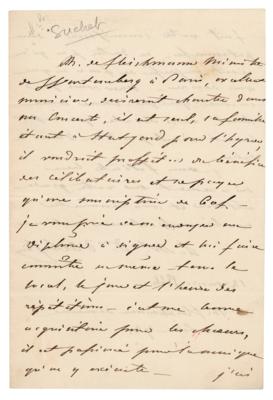 Mr. Suchet
M. de Fleischmann Ministre
de Wurtemberg à Paris, excellent
musicien, désirerait chanter dans
nos Concerts, il est seul, sa famille
étant à Stutgard pour l'hyver,
il voudrait profiter du bénéfice
des célibataires et ne payer
qu'une souscription de
je vous prie de m'envoyer un
diplôme à signer et lui faire
connaître en même tems le
local, le jour et l'heure des
répétitions — c'est une bonne
acquisition pour les chœurs,
il est passionné pour la musique
qu'on y exécute — j'ai